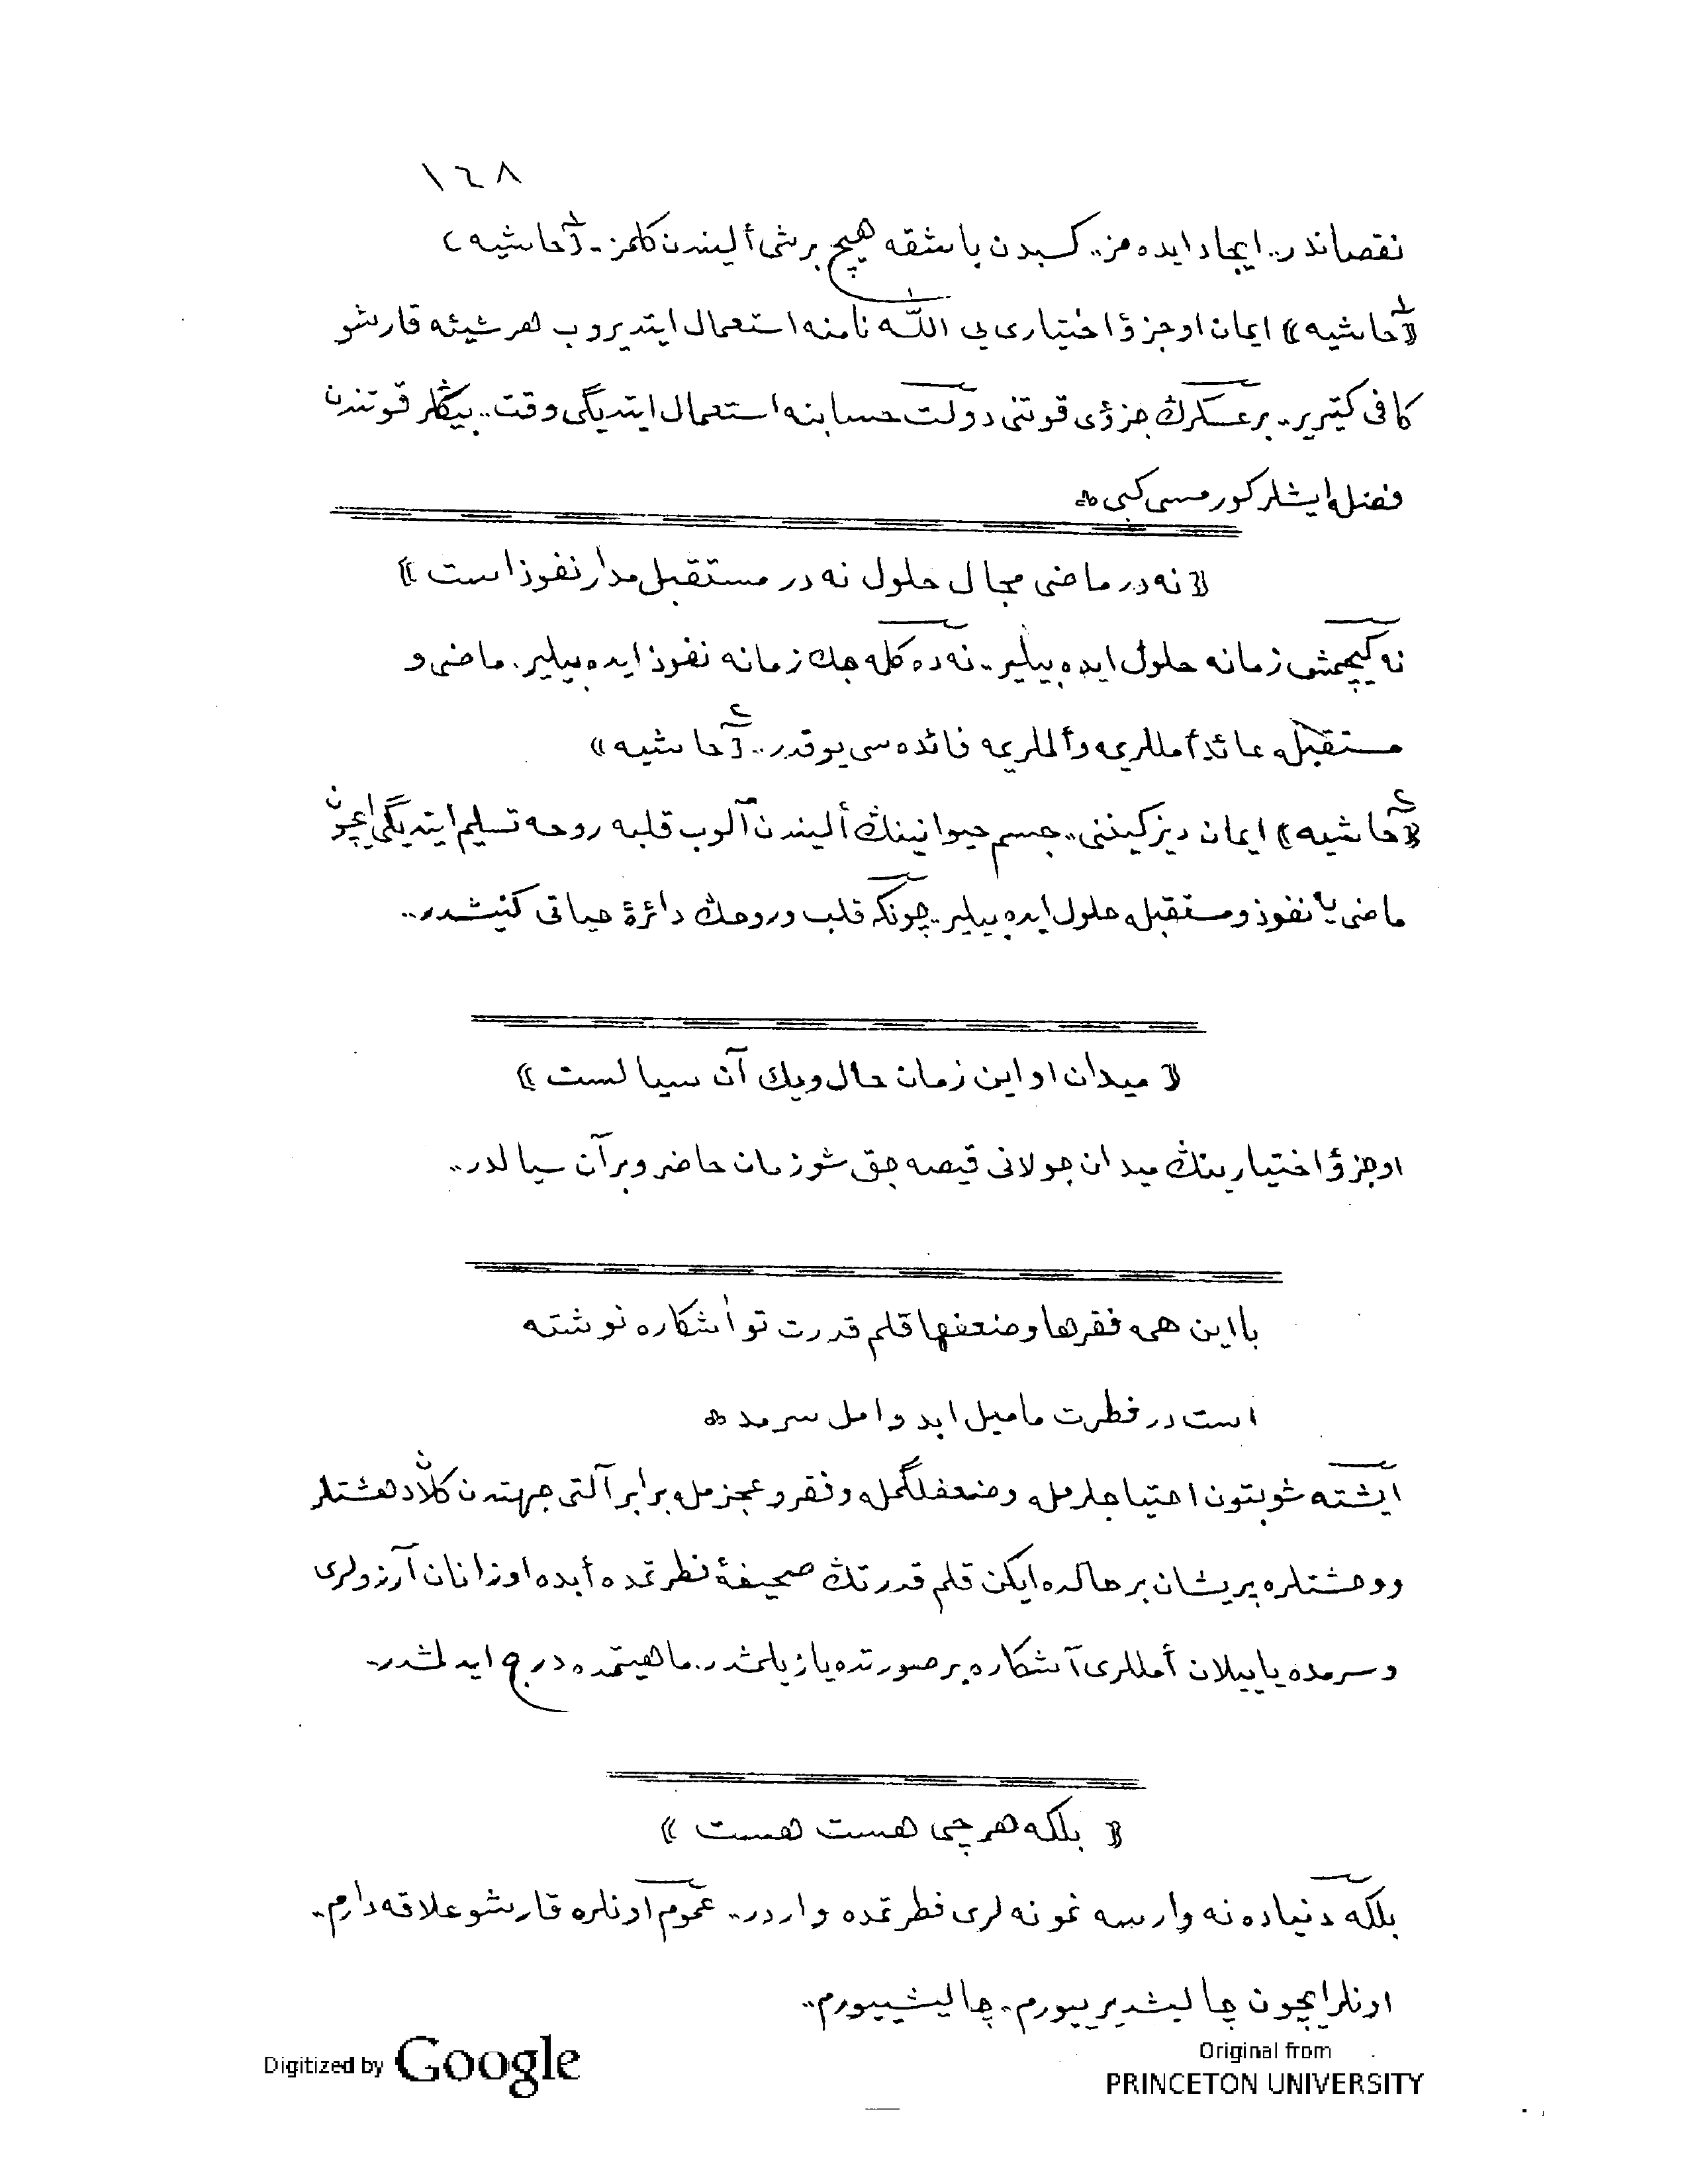 ١٤٨
نقصاندر.. ايجاد ايده مز.. كسبدن باشقه هيچ بر شى أليندن كلمز.. (حاشيه ١)
(حاشيه ١) ايمان او جزؤ اختيارى يى الله نامنه استعمال ايتديروب هر شيئه قارشو
كافى كتيرير.. بر عسكرك جزؤى قوتنى دولت حسابنه استعمال ايتديگى وقت.. بيڭلر قوتندن
فضله ايشلر كورمسى كبى ٭
(نه در ماضى مجال حلول نه در مستقبل مدار نفوذ است)
نه كيچمش زمانه حلول ايده بيلير.. نه ده كله جك زمانه نفوذ ايده بيلير. ماضى و
مستقبله عائد أمللريمه و ألملريمه فائده سى يوقدر.. (حاشيه ٢)
(حاشيه ٢) ايمان ديزكيننى.. جسم حيوانينڭ أليندن آلوب قلبه روحه تسليم ايتديگى ايچون
ماضى يه نفوذ و مستقبله حلول ايده بيلير.. چونكه قلب و روحڭ دائرۀ حياتى كنيشدر..
(ميدان او اين زمان حال و يك آن سيالست)
او جزؤ اختيارينڭ ميدان جولانى قيصه جق شو زمان حاضر و بر آن سيالدر..
با اين همه فقرها و ضعفها قلم قدرت تو آشكاره نوشته
است در فطرت ما ميل ابد و امل سرمد ٭
ايشته شو بتون احتياجلرمله و ضعفلگمله و فقر و عجزمله برابر آلتى جهتدن كلن دهشتلر
و وحشتلره پريشان بر حالده ايكن قلم قدرتڭ صحيفۀ فطرتمده أبده اوزانان آرزولرى
و سرمده يايبلان أمللرى آشكاره بر صورتده يازيلمشدر. ماهيتمده درج ايدلمشدر..
(بلكه هرچى هست هست)
بلكه دنياده نه وارسه نمونه لرى فطرتمده واردر.. عموم اونلره قارشو علاقه دارم..
اونلر ايچون چاليشديرييورم.. چاليشييورم..
Digitized by Google
Original from
PRINCETON UNIVERSITY